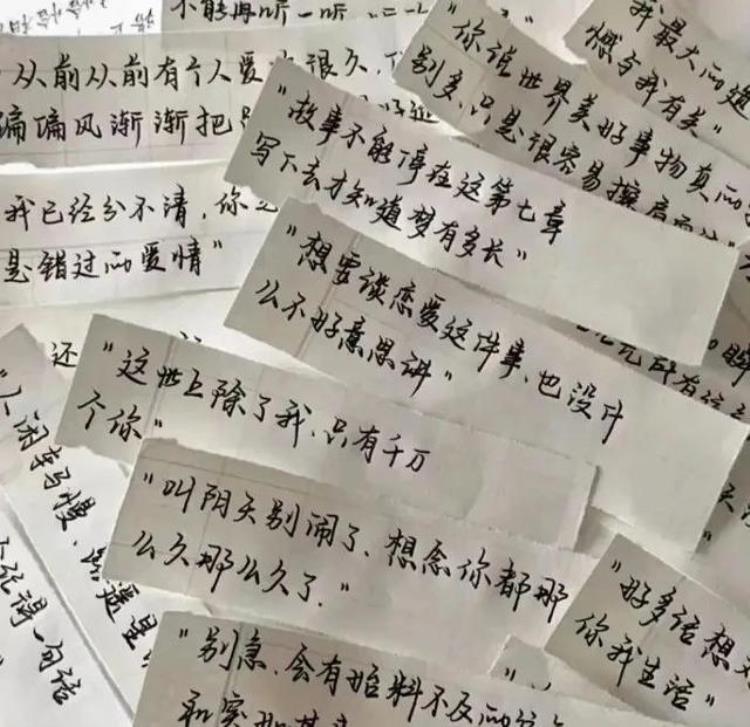 不能再听一听
从前从前有个人爱你很久,
偏偏风渐渐把
"你说世界美好事物真的
别多,只是很容易擦肩而过"
我最大的遗
憾与我有关"
"故事不能停在这第七章
写下去才知道梦有多长"
我已经分不清,你
是错过的爱情"
"想要谈恋爱这件事、也没什
么不好意思讲"
还
所有
"这世上除了我、只有千万
个你"
"人闲车马慢、路遥
一句话
"叫阴天别闹了、想念你都那
么久那么久了."
"好多话想
你我生活"
"别急、会有始料不及的
和